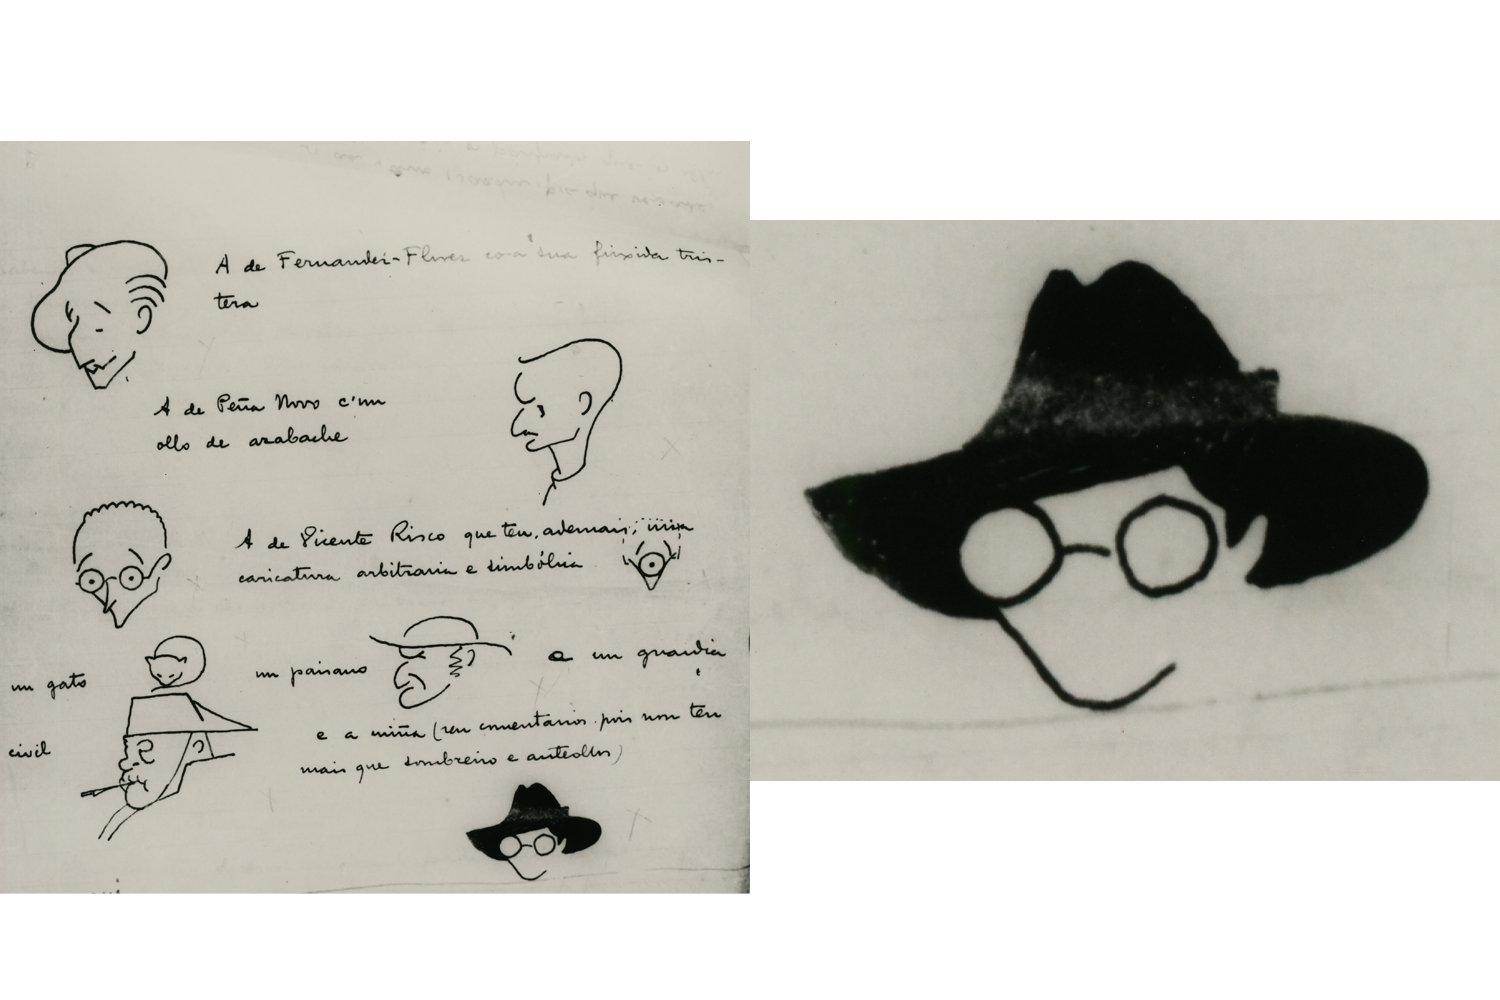 A de Fernandez-Florez coa sua finxida tris-
teza
A de Peña Novo c'un
ollo de azabache
A de Vicente Risco que ten, ademais,
caricatura arbitraria e simbólica
un gato
un paisano
e un guardia
civil
e a miña (sen comentarios pois non ten
mais que sombreiro e anteollos)